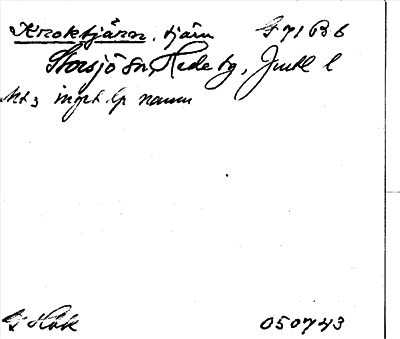 Kroktjärn, tjärn 971 B 6
Storsjö sn, Hede tg, Jmtl l
Mt 3 inget lp namn
050743